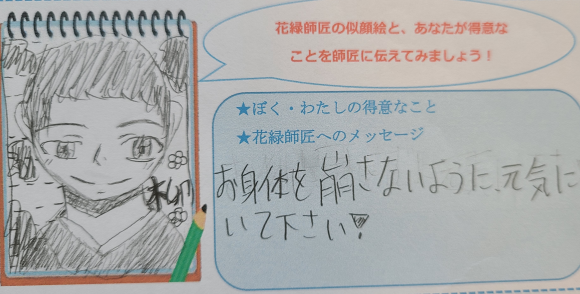 花緑師匠の似顔絵と、あなたが得意な
ことを師匠に伝えてみましょう！
★ぼく・わたしの得意なこと
★花緑師匠へのメッセージ
お身体を崩さないように、元気に
いて下さい！